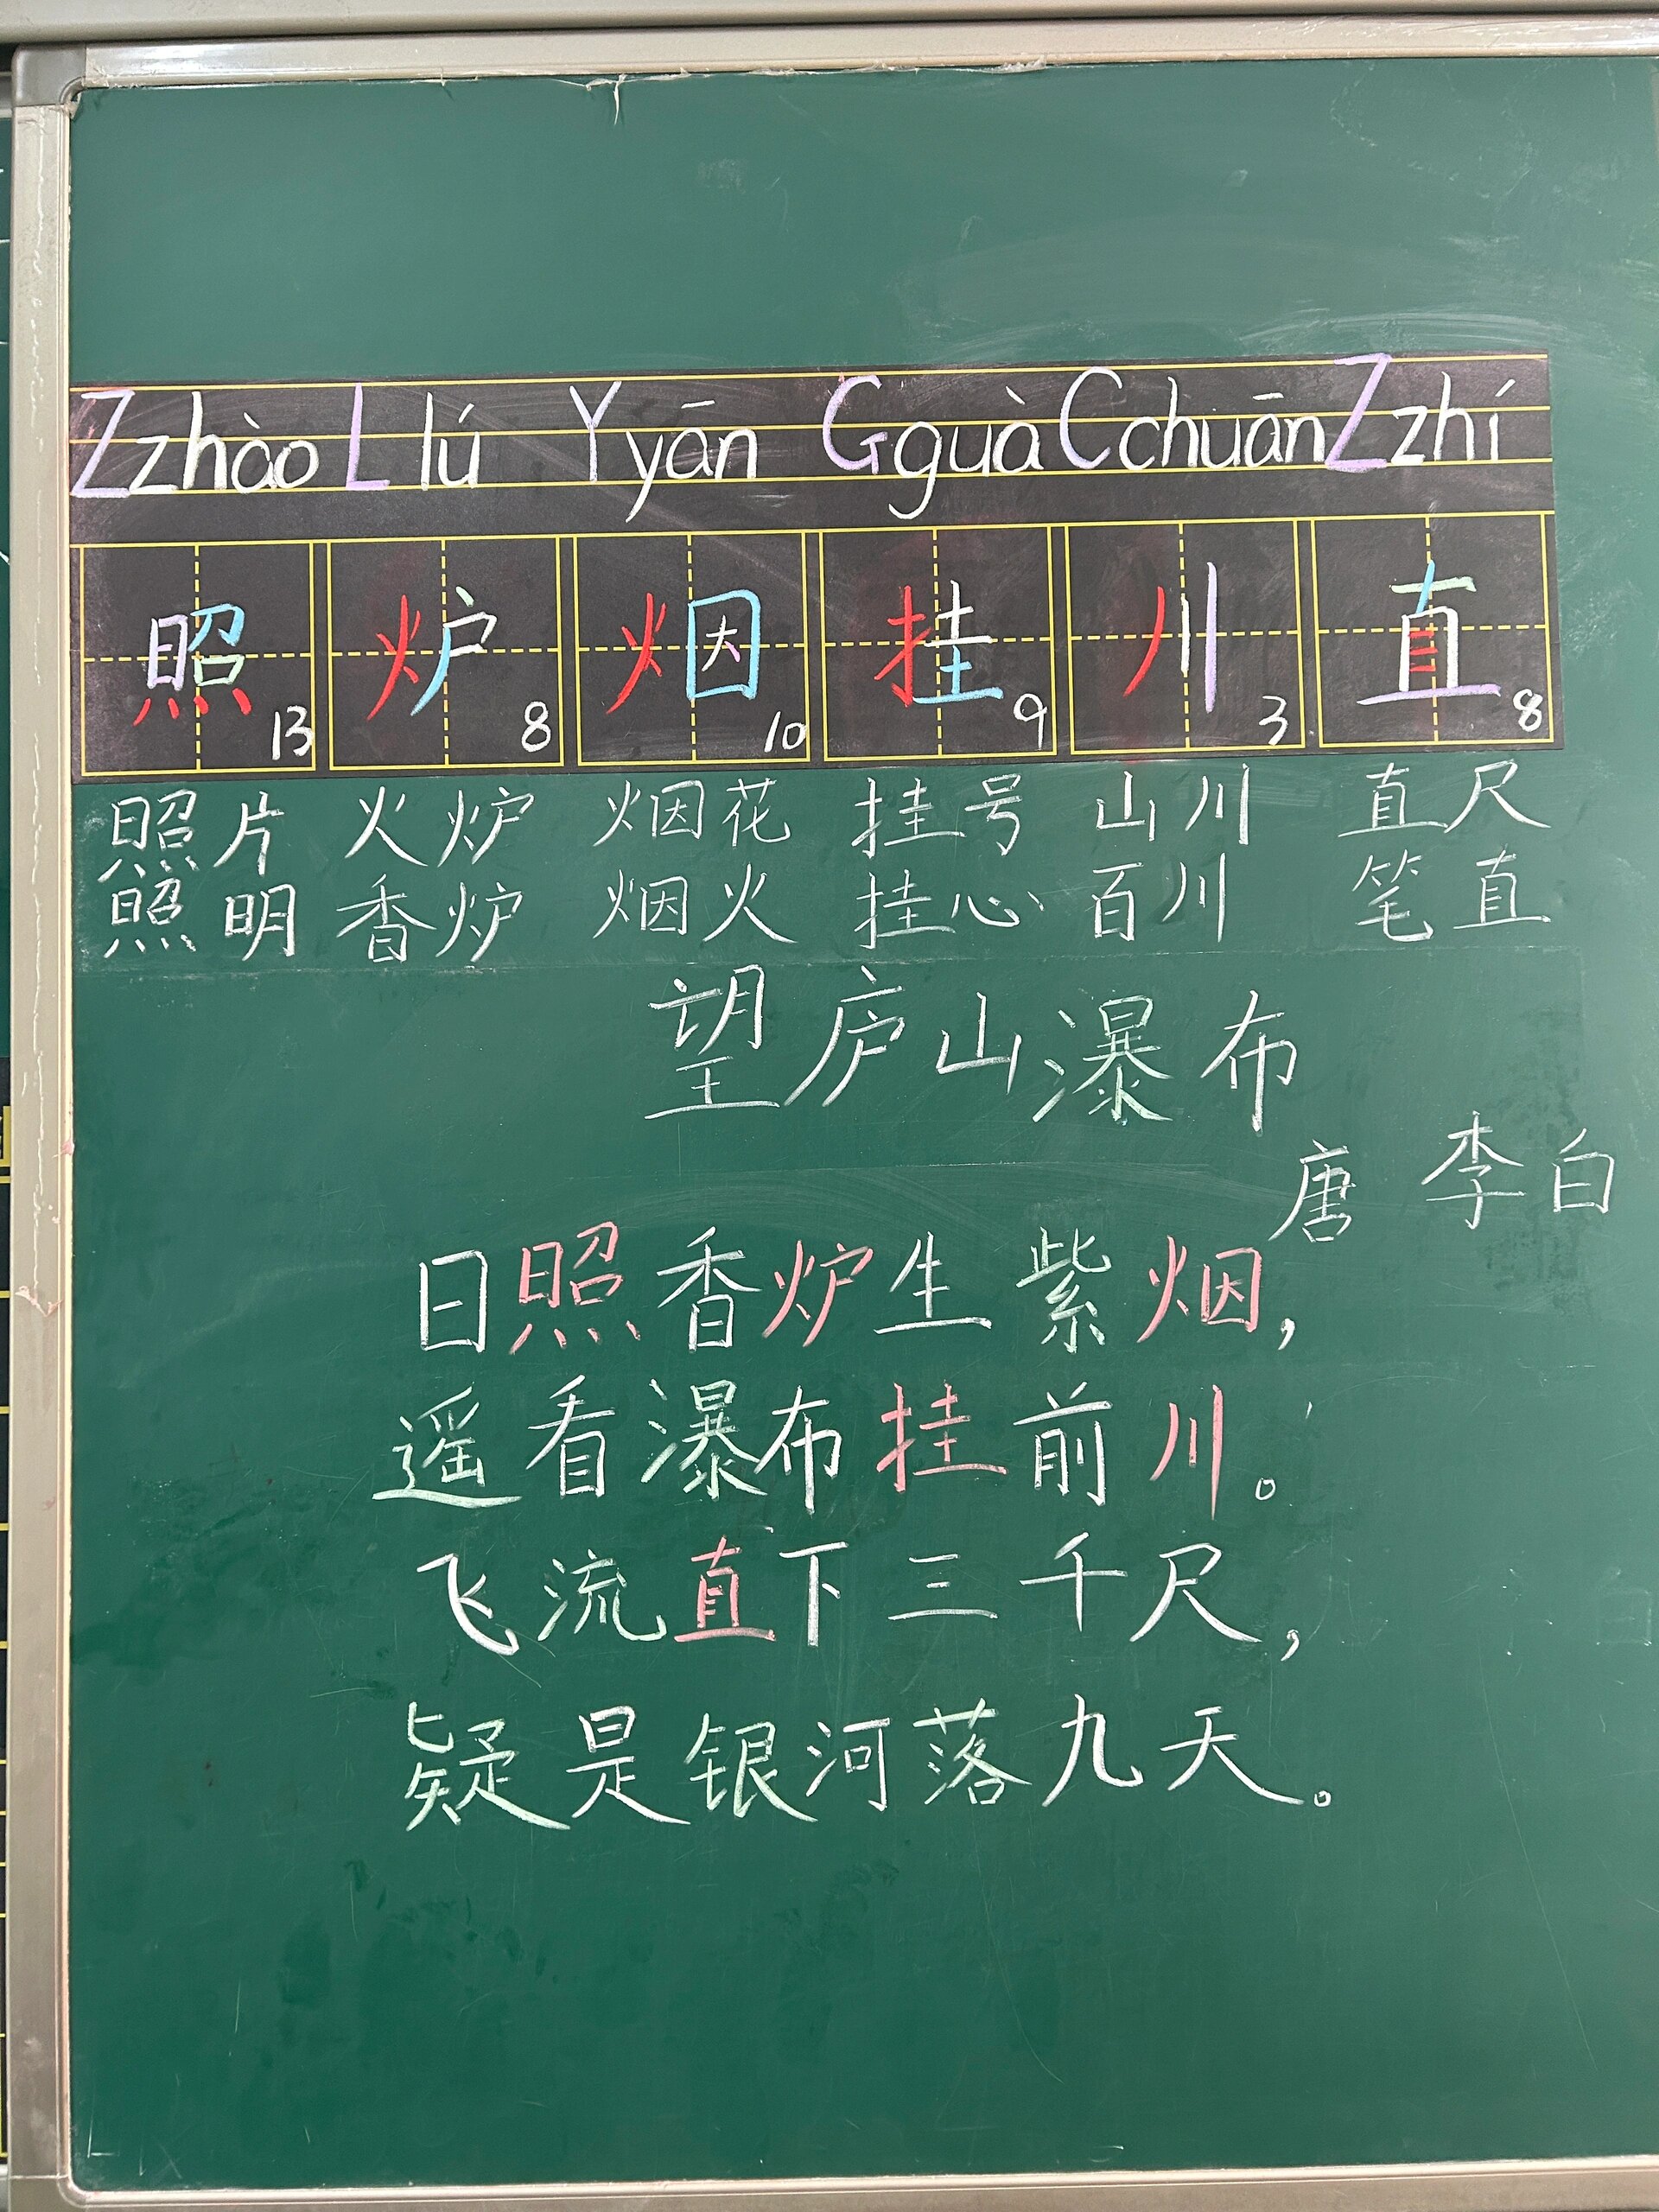 Zzhào Llú Yyān Gguà Cchuān Zzhí
照 炉 烟 挂 川 直
13 8 10 9 3 8
照片 火炉 烟花 挂号 山川 直尺
照明 香炉 烟火 挂心 百川 笔直
望庐山瀑布
唐 李白
日照香炉生紫烟,
遥看瀑布挂前川。
飞流直下三千尺,
疑是银河落九天。